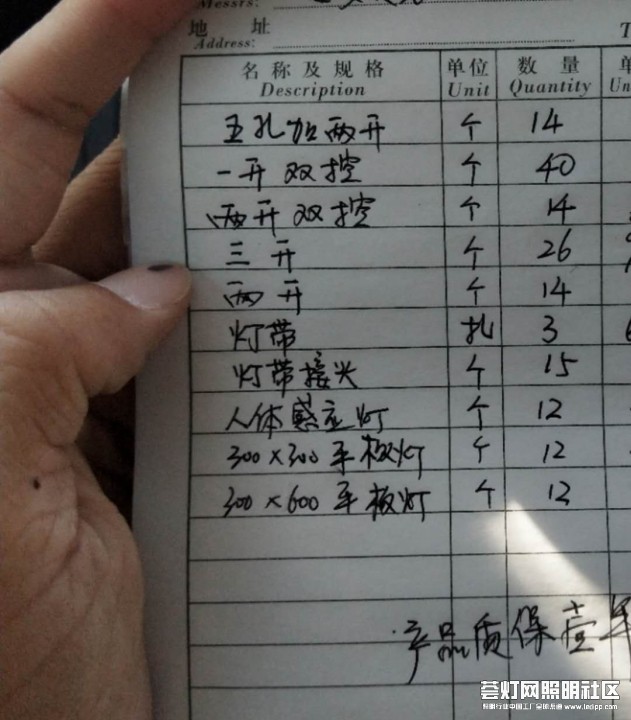 Messrs:
地 址
Address:
名称及规格 单位 数量
Description Unit Quantity
五孔加两开 个 14
一开双控 个 40
两开双控 个 14
三开 个 26
两开 个 14
灯带 扎 3
灯带接头 个 15
人体感应灯 个 12
300×300平板灯 个 12
300×600平板灯 个 12
产品质保壹年
荟灯网照明社区
www.ledipp.com